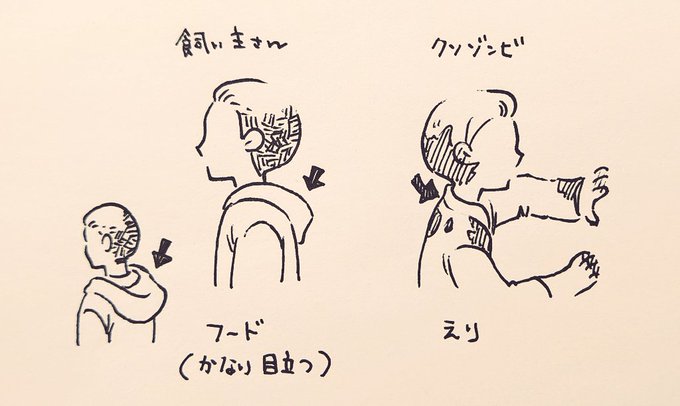 飼い主さん
クソゾンビ
フード
(かなり目立つ)
えり